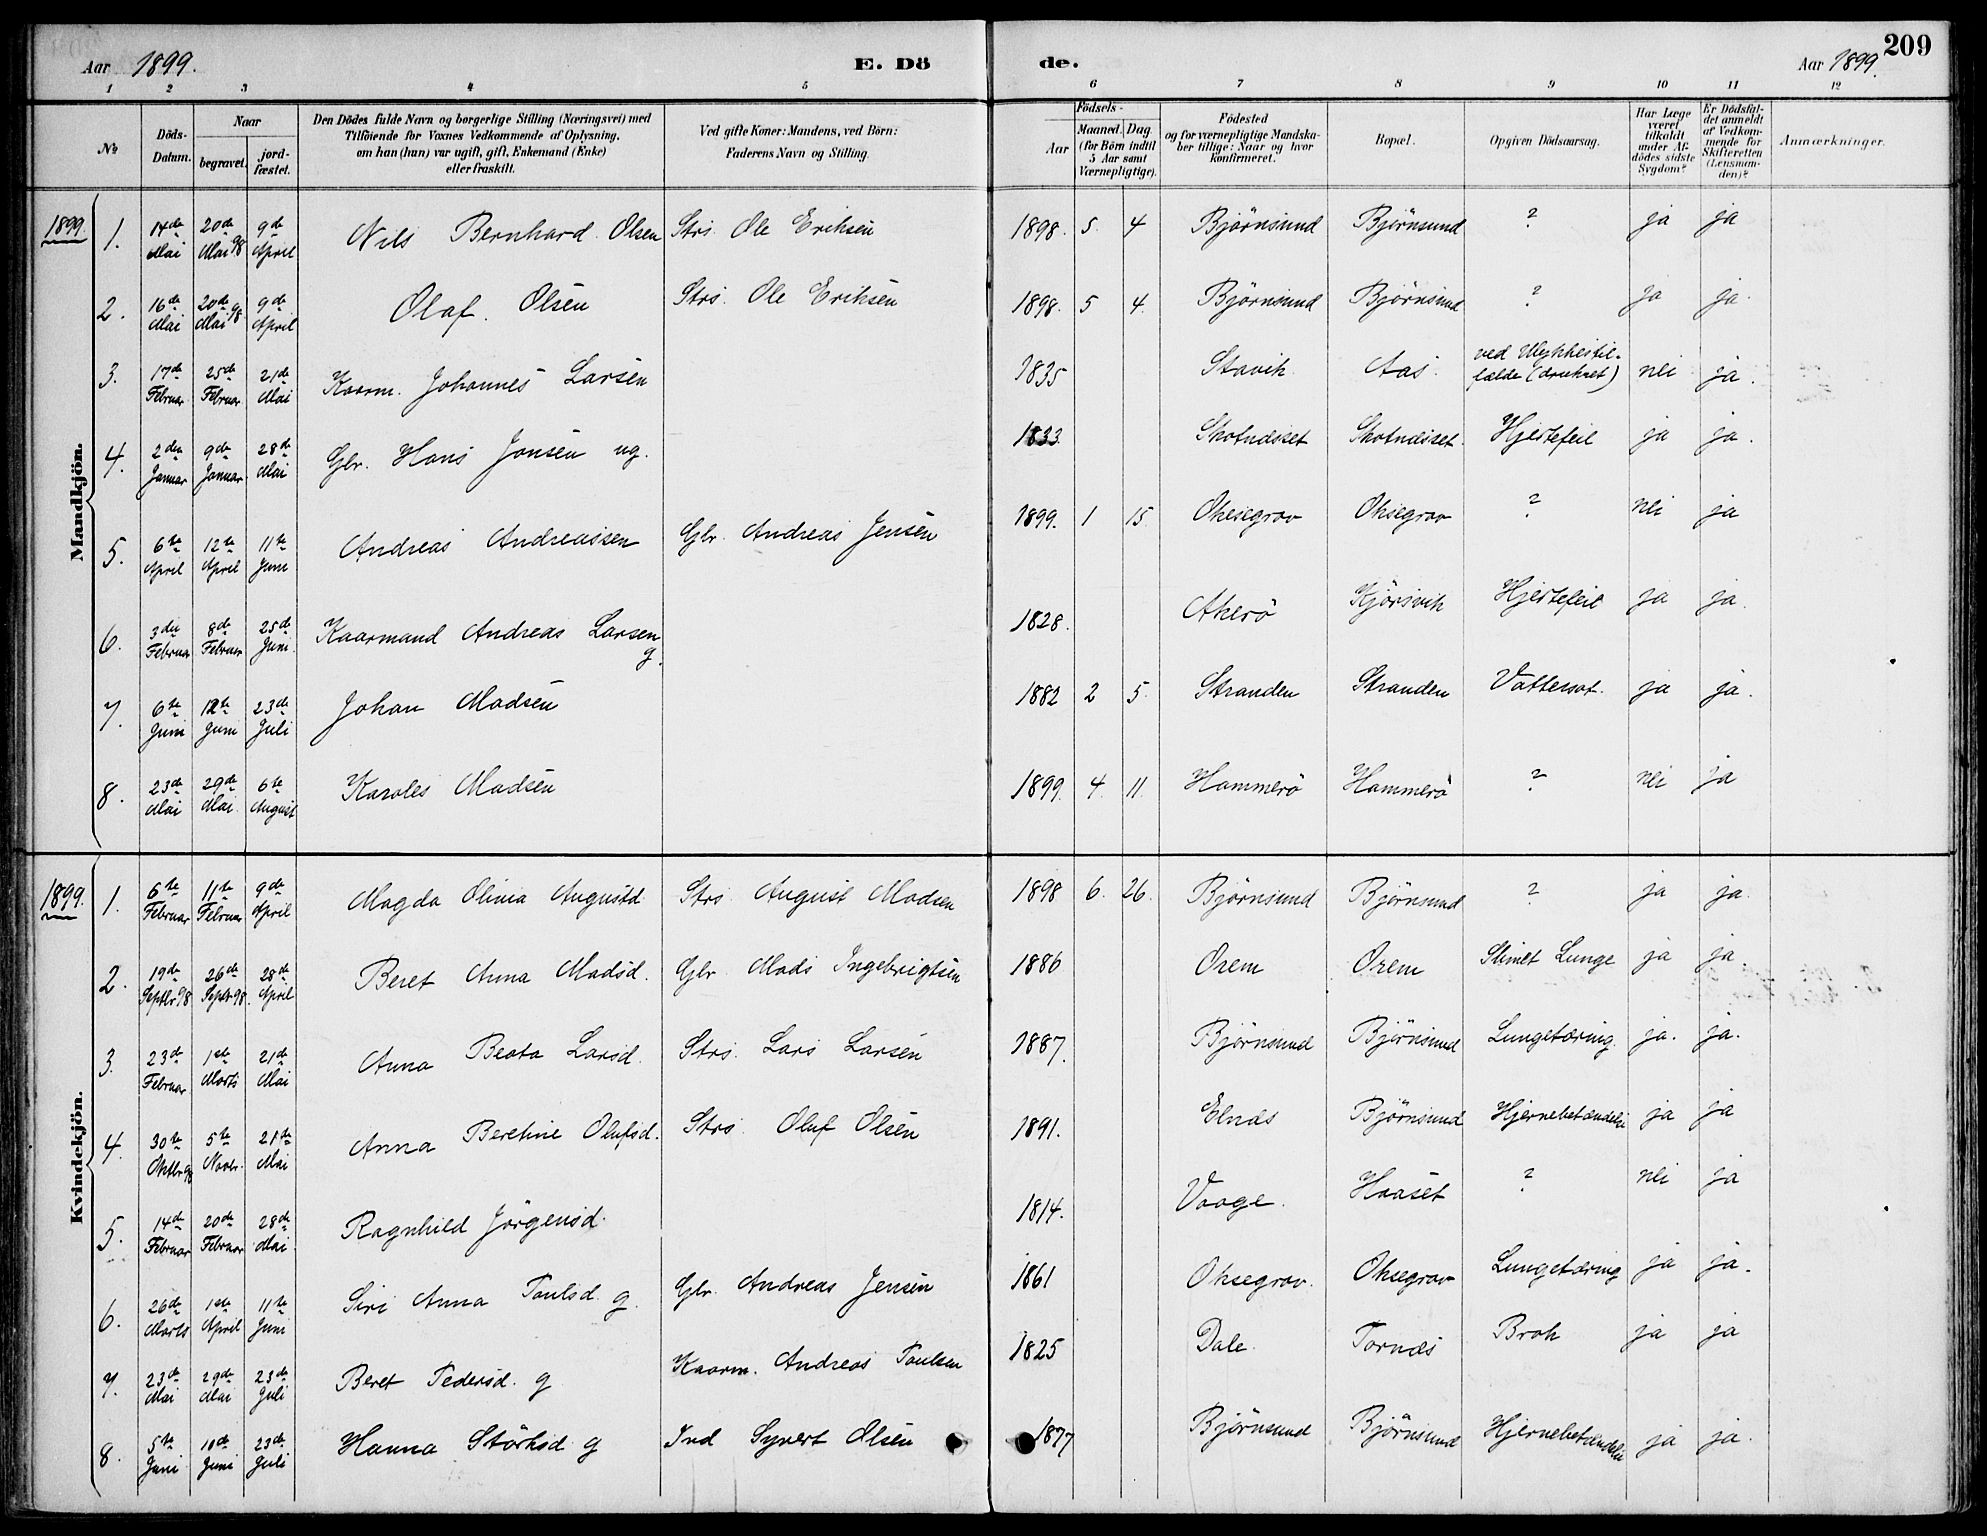 Aar 1899. E. Dö de. Aar 1899. 209
1 2 3 4 5 6 7 8 9 10 11 12
№ Döds-Datum. Naar begravet. jord-fæstet. Den Dödes fulde Navn og borgerlige Stilling (Næringsvei) med Tilföiende for Voxnes Vedkommende af Oplysning, om han (hun) var ugift, gift, Enkemand (Enke) eller fraskilt. Ved gifte Koner: Mandens, ved Börn: Faderens Navn og Stilling. Födsels- Aar Maaned. Dag (for Börn indtil 5 Aar samt Værnepligtige). Födested og for værnepligtige Mandskaber tillige: Naar og hvor konfirmeret. Bopæl. Opgiven Dödsaarsag. Har Læge været tilkaldt under Afdödes sidste Sygdom? Er Dödsfaldet anmeldt af Vedkommende for Skifteretten (Lensmanden)? Anmærkninger.
Mandkjön.
1899. 1. 14de Mai 20de Mai 98 9de April Nils Bernhard Olsen Strs. Ole Eriksen 1898. 5. 4 Björnsund Björnsund ? ja ja
2. 16de Mai 20de Mai 98 9de April Olaf Olsen Strs. Ole Eriksen 1898. 5 4. Björnsund Björnsund ? ja ja.
3. 17de Februar 25de Februar 21de Mai Kaarm. Johannes Larsen 1835 Stavik Aas. ved Ulykkestilfælde (druknet) nei ja.
4. 2den Januar 9de Januar 28de Mai Gbr. Hans Jonsen ug. 1833. Skotneset Skotneset. Hjertefeil ja ja.
5. 6te April 12te April 11te Juni Andreas Andreassen Gbr. Andreas Jensen 1899. 1 15. Oksegrav Oksegrav ? nei ja
6. 3die Februar 8de Februar 25de Juni. Kaarmand Andreas Larsen g. 1828. Akerö Kjörsvik Hjertefeil ja ja.
7. 6te Juni 12te Juni 23de Juli Johan Madsen 1882 2 5. Stranden Stranden Vattersot. ja ja.
8. 23de Mai 29de Mai. 6te August Karoles Madsen 1899. 4. 11. Hammerö Hammerö ? nei ja
Kvindekjön.
1899. 1. 6te Februar 11te Februar 9de April Magda Olivia Augustd. Strs. August Madsen 1898 6. 26. Björnsund Björnsund ? ja ja.
2. 19de Septbr 98 26de Septbr 98. 28de April Beret Anna Madsd. Gbr. Mads Ingebrigtsen 1886 Orem Orem Slimet Lunge ja ja.
3. 23de Februar 1ste Marts 21de Mai Anna Beata Larsd. Strs. Lars Larsen 1887. Björnsund Björnsund Lungetæring. ja. ja.
4. 30te Oktbr 98 5te Novbr. 21de Mai Anna Beretine Olufsd. Strs. Oluf Olsen 1891. Elnæs Björnsund Hjernebetændelse ja ja
5. 14de Februar 20de Februar 28de Mai. Ragnhild Jörgensd. 1814. Vaage. Haaset ? nei ja
6. 26de Marts 1ste April 11te Juni Siri Anna Paulsd. g. Gbr. Andreas Jensen 1861 Oksegrav. Oksegrav Lungetæring ja ja.
7. 23de Mai 29de Mai 23de Juli Beret Pedersd. g Kaarm. Andreas Paulsen 1825 Dale. Tornes Brok ja ja
8. 5te Juni 10de Juni 23de Juli Hanna Störksd. g Ind Syvert Olsen 1877 Björnsund Björnsund Hjernebetændelse ja ja.